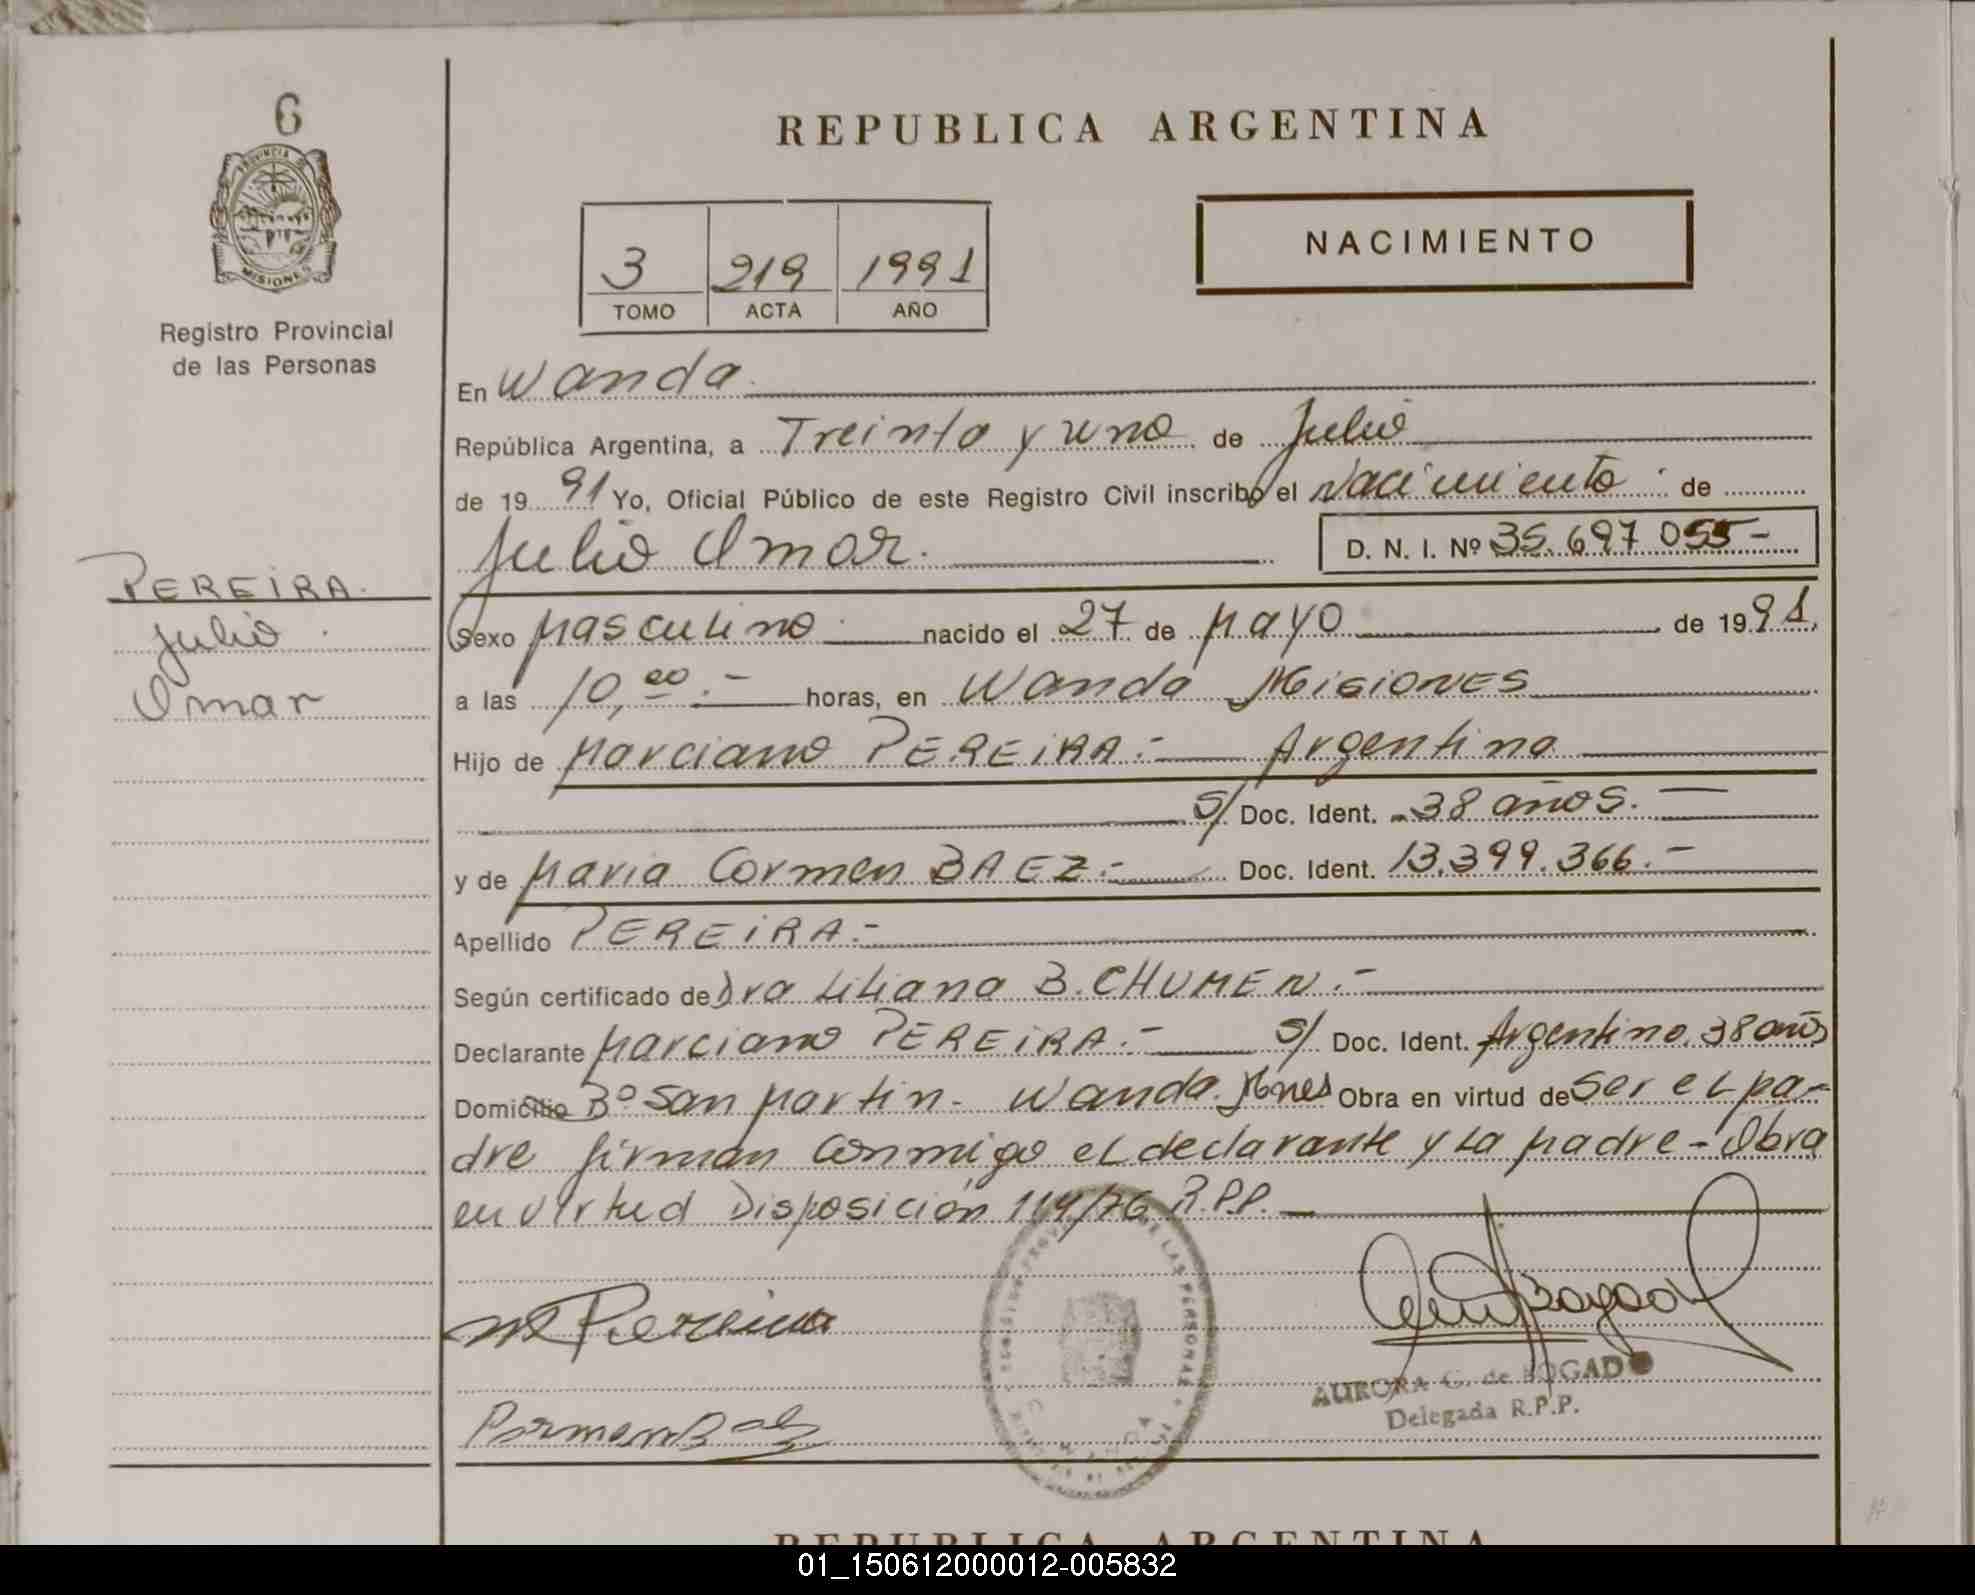 6
PROVINCIA DE
MISIONES
Registro Provincial
de las Personas
REPUBLICA ARGENTINA
3 219 1991
TOMO ACTA AÑO
NACIMIENTO
En Wanda
República Argentina, a Treinta y uno de Julio
de 19 91 Yo, Oficial Público de este Registro Civil inscribo el Nacimiento de
Julio Omar. D. N. I. Nº 35.697 055-
PEREIRA.
Julio
Omar
Sexo Masculino nacido el 27 de Mayo de 1991,
a las 10,00.- horas, en Wanda Misiones
Hijo de Marciano PEREIRA.- Argentino
S/ Doc. Ident. 38 años.-
y de Maria Carmen BAEZ.- Doc. Ident. 13.399.366.-
Apellido PEREIRA.-
Según certificado de Dra Liliana B. CHUMEN.-
Declarante Marciano PEREIRA.- S/ Doc. Ident. Argentino. 38 años
Domicilio Bº San Martin- Wanda. Mnes Obra en virtud de Ser el pa-
dre firman conmigo el declarante y la madre- Obra
en virtud Disposición 114/76 R.P.P.
M Pereira
AURORA G. de BOGADO
Delegada R.P.P.
REPUBLICA ARGENTINA
01_150612000012-005832